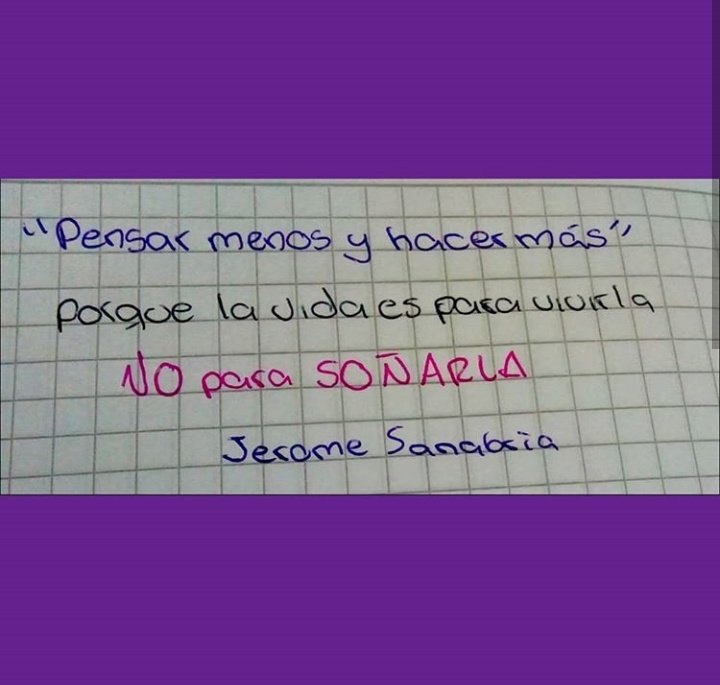 "Pensar menos y hacer más"
porque la vida es para vivirla
NO para SOÑARLA
Jerome Sanabria